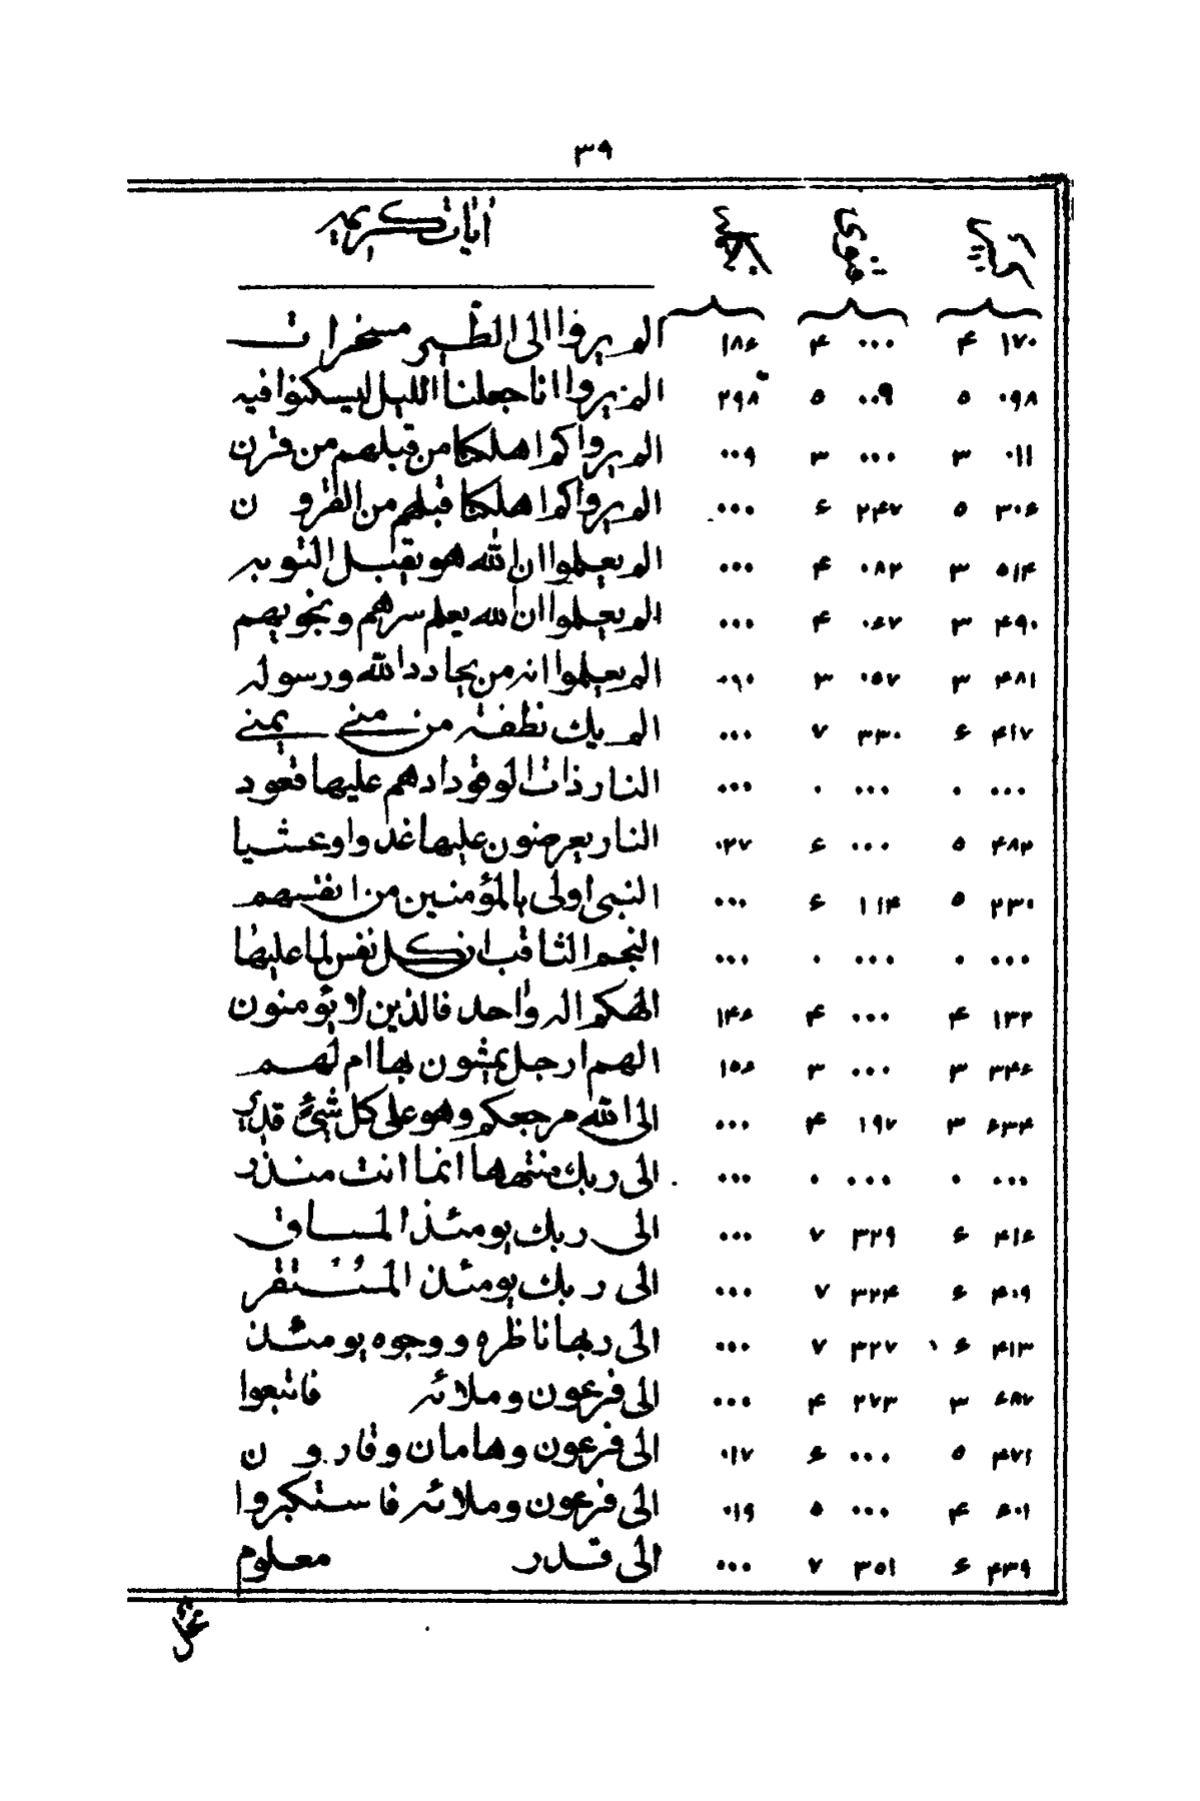 ۳۹
آیات کریمه
۱۷۰ ۴ ۰۰۰ ۴ ۱۸۶ الم یروا الی الطیر مسخرات
۰۹۸ ۵ ۰۰۹ ۵ ۲۹۸ الم یروا انا جعلنا اللیل لیسکنوا فیه
۰۱۱ ۳ ۰۰۰ ۳ ۰۰۹ الم یروا کم اهلکنا من قبلهم من قرن
۳۰۶ ۵ ۲۴۷ ۶ ۰۰۰ الم یروا کم اهلکنا قبلهم من القرون
۵۱۴ ۳ ۰۸۲ ۴ ۰۰۰ الم یعلموا ان الله هو یقبل التوبه
۴۹۰ ۳ ۰۶۷ ۴ ۰۰۰ الم یعلموا ان الله یعلم سرهم و نجویهم
۴۸۱ ۳ ۰۵۷ ۳ ۰۹۰ الم یعلموا انه من یحادد الله و رسوله
۴۱۷ ۶ ۳۳۰ ۷ ۰۰۰ الم یک نطفة من منی یمنی
۰۰۰ ۰ ۰۰۰ ۰ ۰۰۰ النار ذات الوقود اذ هم علیها قعود
۴۸۲ ۵ ۰۰۰ ۶ ۰۲۷ النار یعرضون علیها غدوا و عشیا
۲۳۰ ۵ ۱۱۴ ۶ ۰۰۰ النبی اولی بالمؤمنین من انفسهم
۰۰۰ ۰ ۰۰۰ ۰ ۰۰۰ النجم الثاقب ان کل نفس لما علیها
۱۳۲ ۴ ۰۰۰ ۴ ۱۴۶ الهکم اله واحد فالذین لا یؤمنون
۳۴۶ ۳ ۰۰۰ ۳ ۱۵۶ الهم ارجل یمشون بها ام لهم
۶۳۴ ۳ ۱۹۷ ۴ ۰۰۰ الی الله مرجعکم وهو علی کل شیئ قدیر
۰۰۰ ۰ ۰۰۰ ۰ ۰۰۰ الی ربک منتهها انما انت منذر
۴۱۶ ۶ ۳۲۹ ۷ ۰۰۰ الی ربک یومئذ المساق
۴۰۹ ۶ ۳۲۴ ۷ ۰۰۰ الی ربک یومئذ المستقر
۴۱۳ ۶ ۳۲۷ ۷ ۰۰۰ الی ربها ناظره و وجوه یومئذ
۶۸۷ ۳ ۲۷۳ ۴ ۰۰۰ الی فرعون و ملائه فاتبعوا
۴۷۱ ۵ ۰۰۰ ۶ ۰۱۷ الی فرعون و هامان و قارون
۶۰۱ ۴ ۰۰۰ ۵ ۰۱۹ الی فرعون و ملائه فاستکبروا
۴۳۹ ۶ ۳۵۱ ۷ ۰۰۰ الی قدر معلوم